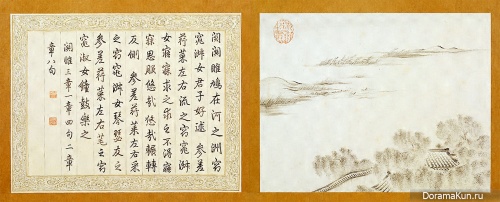 關關雎鳩在河之洲窈
窕淑女君子好逑參差
荇菜左右流之窈窕淑
女寤寐求之求之不得寤
寐思服悠哉悠哉輾轉
反側參差荇菜左右采
之窈窕淑女琴瑟友之
參差荇菜左右芼之窈
窕淑女鐘鼓樂之
關雎三章一章四句二章
章八句
DoramaKun.ru